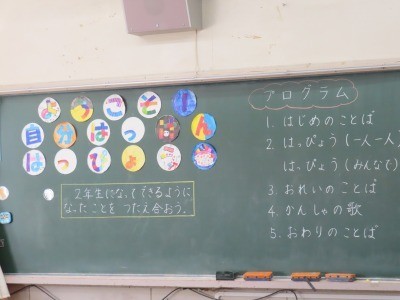 ようこそ!
自分はっけん
はっぴょう
2年生になってできるように
なったことを つたえ合おう。
プログラム
1. はじめのことば
2. はっぴょう(一人一人)
はっぴょう(みんなで)
3. おれいのことば
4. かんしゃの歌
5. おわりのことば